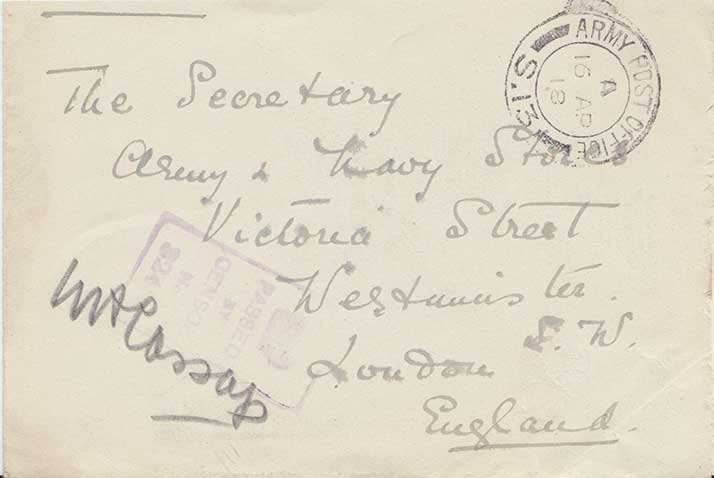 The Secretary
Army & Navy Stores
Victoria Street
Westminster.
S.W.
London
England.
ARMY POST OFFICE
A
16 AP
18
PASSED
BY
CENSOR